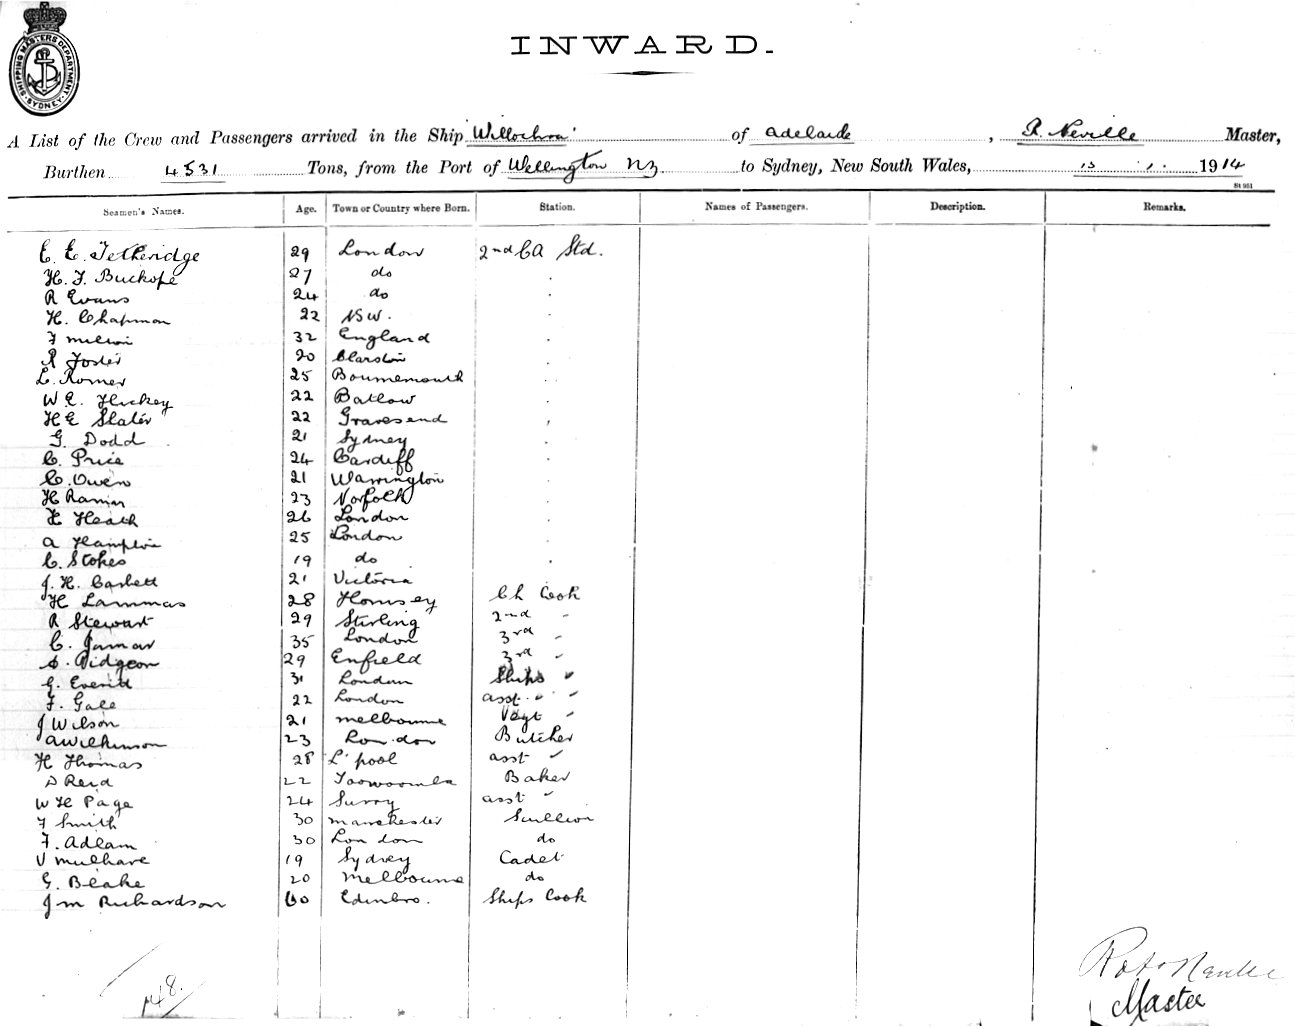 SHIPPING MASTERS DEPARTMENT
SYDNEY
INWARD.
A List of the Crew and Passengers arrived in the Ship Willochra of Adelaide, R. Neville Master,
Burthen 4531 Tons, from the Port of Wellington NZ to Sydney, New South Wales, 1914
St 951
Seamen's Names. Age. Town or Country where Born. Station. Names of Passengers. Description. Remarks.
E. E. Tetheridge 29 London 2nd CA Std.
H. F. Buckope 27 do
R Evans 24 do
H. Chapman 22 NSW.
F 32 England
R Foster 20
L. Romer 25 Bournemouth
W E. Hickey 22 Batlow
H E Slater 22 Gravesend
G. Dodd 21 Sydney
C. Price 24 Cardiff
C. Owen 21 Warrington
H Ramin 23 Norfolk
H Heath 26 London
A Hampton 25 London
C. Stokes 19 do
J. H. Corbett 21 Victoria
H Lammas 28 Hornsey Ch Cook
R Stewart 29 Stirling 2nd "
C. Jamar 35 London 3rd "
A. Pidgeon 29 Enfield 3rd "
G. Everitt 31 London Ships "
F. Gale 22 London asst " "
J Wilson 21 Melbourne Vegt "
A Wilkinson 23 London Butcher
H Thomas 28 L'pool asst "
D Reid 22 Toowoomba Baker
W H Page 24 Surry asst "
F Smith 30 Manchester Scullion
F. Adlam 30 London do
V Mulhare 19 Sydney Cadet
G. Blake 20 Melbourne do
J M Richardson 60 Edinbro. Ships Cook
48.
Master